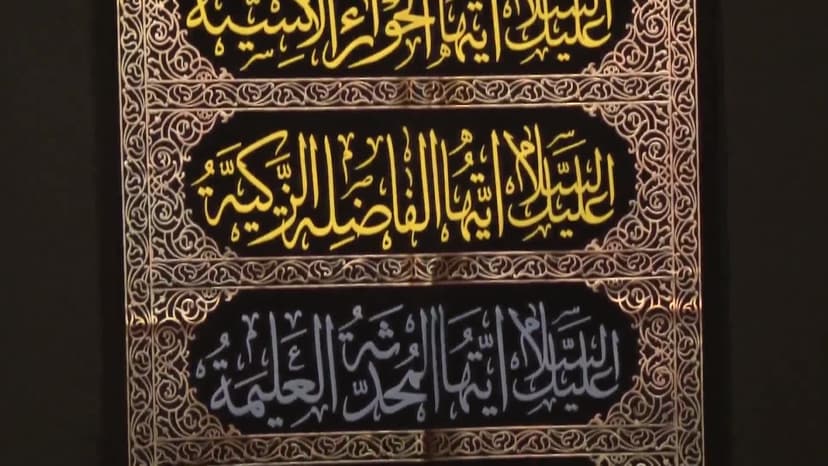 السلام عليك ايتها الحوراء الانسية
السَّلام عليك ايَّتُها الفاضِله الزَّكيَّةُ
السَّلام عليك ايَّتُها المُحدَّثةُ العَليمَةُ